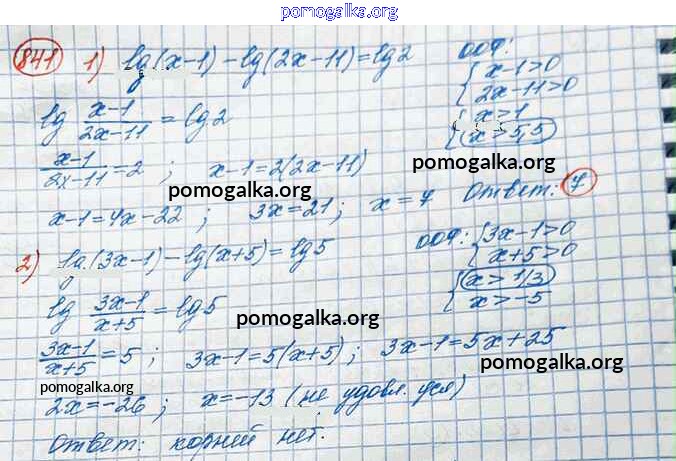 pomogalka.org
841 1) lg(x-1) - lg(2x-11) = lg2
ООФ: { x-1>0
2x-11>0
lg (x-1)/(2x-11) = lg2
{ x>1
x>5,5
(x-1)/(2x-11) = 2 ; x-1=2(2x-11)
pomogalka.org
pomogalka.org
x-1=4x-22 ; 3x=21 ; x=7 Ответ: 7
2) lg(3x-1) - lg(x+5) = lg5
ООФ: { 3x-1>0
x+5>0
{ x>1/3
x>-5
lg (3x-1)/(x+5) = lg5
pomogalka.org
(3x-1)/(x+5) = 5 ; 3x-1=5(x+5) ; 3x-1=5x+25
pomogalka.org
pomogalka.org
2x=-26 ; x=-13 (не удовл. усл)
Ответ: корней нет.